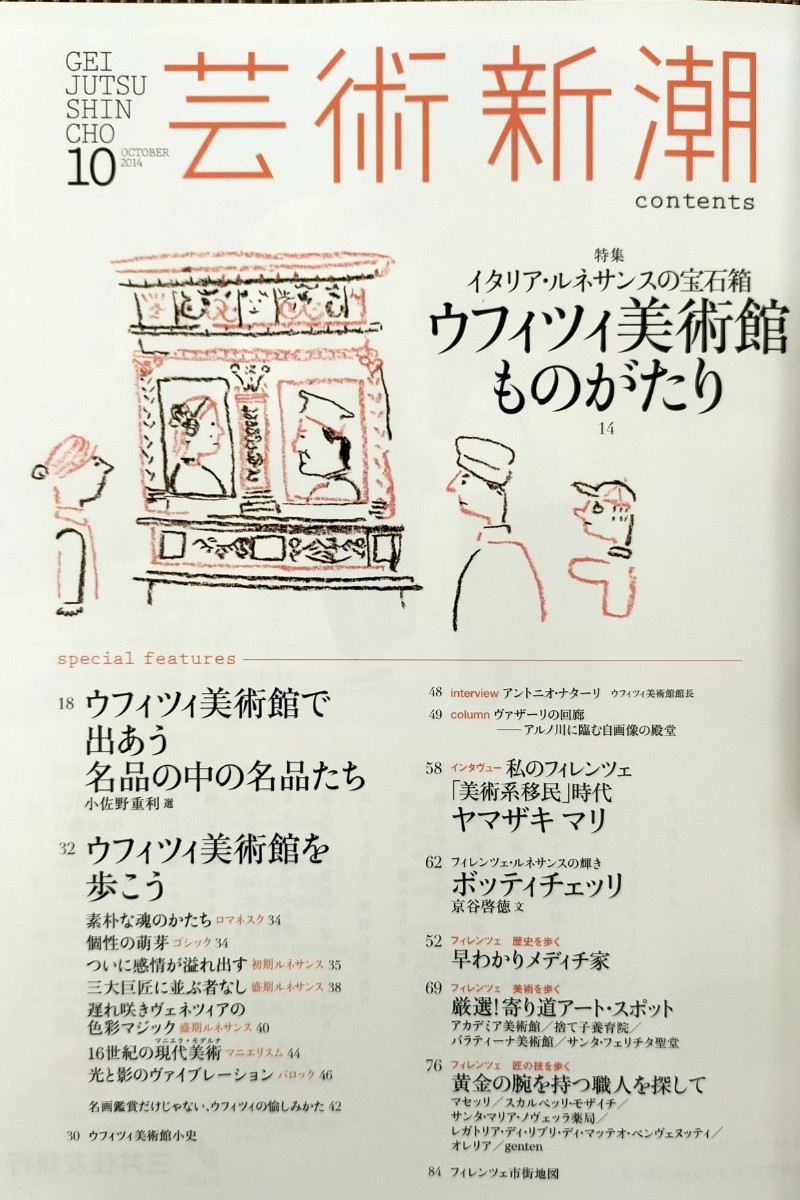 GEI
JUTSU
SHIN
CHO
10 OCTOBER
2014
芸術新潮
contents
特集
イタリア・ルネサンスの宝石箱
ウフィツィ美術館
ものがたり
14
special features
18 ウフィツィ美術館で
出あう
名品の中の名品たち
小佐野重利 選
32 ウフィツィ美術館を
歩こう
素朴な魂のかたち ロマネスク 34
個性の萌芽 ゴシック 34
ついに感情が溢れ出す 初期ルネサンス 35
三大巨匠に並ぶ者なし 盛期ルネサンス 38
遅れ咲きヴェネツィアの
色彩マジック 盛期ルネサンス 40
マニエラ・モデルナ
16世紀の現代美術 マニエリスム 44
光と影のヴァイブレーション バロック 46
名画鑑賞だけじゃない、ウフィツィの愉しみかた 42
30 ウフィツィ美術館小史
48 interview アントニオ・ナターリ ウフィツィ美術館館長
49 column ヴァザーリの回廊
――アルノ川に臨む自画像の殿堂
58 インタヴュー 私のフィレンツェ
「美術系移民」時代
ヤマザキ マリ
62 フィレンツェ・ルネサンスの輝き
ボッティチェッリ
京谷啓徳 文
52 フィレンツェ 歴史を歩く
早わかりメディチ家
69 フィレンツェ 美術を歩く
厳選!寄り道アート・スポット
アカデミア美術館/捨て子養育院/
パラティーナ美術館/サンタ・フェリチタ聖堂
76 フィレンツェ 匠の技を歩く
黄金の腕を持つ職人を探して
マセッリ/スカルペッリ・モザイチ/
サンタ・マリア・ノヴェッラ薬局/
レガトリア・ディ・リブリ・ディ・マッテオ・ベンヴェヌッティ/
オレリア/genten
84 フィレンツェ市街地図